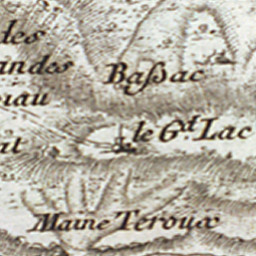 les
andes
Baſsac
iau
le G.d Lac
at
Maine Teroux